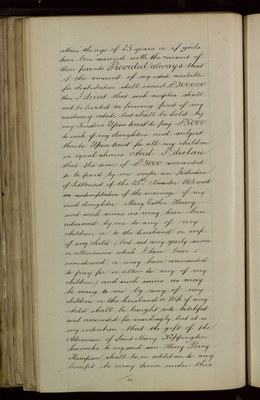 attain the age of 25 years or if girls
have been married with the consent of
their parents Provided always that
if the amount of my estate available
for distribution shall exceed £300000
then I direct that such surplus shall
not be treated as forming part of my
residuary estate but shall be held by
my Trustees Upon trust to pay £5000
to each of my daughters and subject
thereto Upon trust for all my children
in equal shares And I declare
that the sum of £3000 covenanted
to be paid by me under an Indenture
of Settlement of the 25th November made
in contemplation of the marriage of my
said daughter Mary Esther Harvey
and such sums as may have been
advanced by me to any of my
children or to the husband or wife
of any child (but not any yearly sums
or allowances which I have
covenanted or may have covenanted
to pay for or allow to any of my
children) and such sums as may
be owing to me by any of my
children or the husband or Wife of any
child shall be brought into hotchpot
and accounted for accordingly but it is
my intention that the gift of the
Advowson of Saint Mary
to my said son Henry
shall be in addition to any
benefit he may derive under this